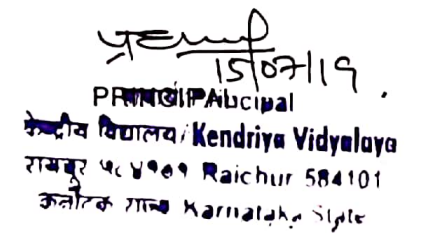 15/07/19.
PRINCIPAL Principal
केन्द्रीय विद्यालय/Kendriya Vidyalaya
रायचूर ५८४१०१ Raichur 584101
कर्नाटक राज्य Karnataka State